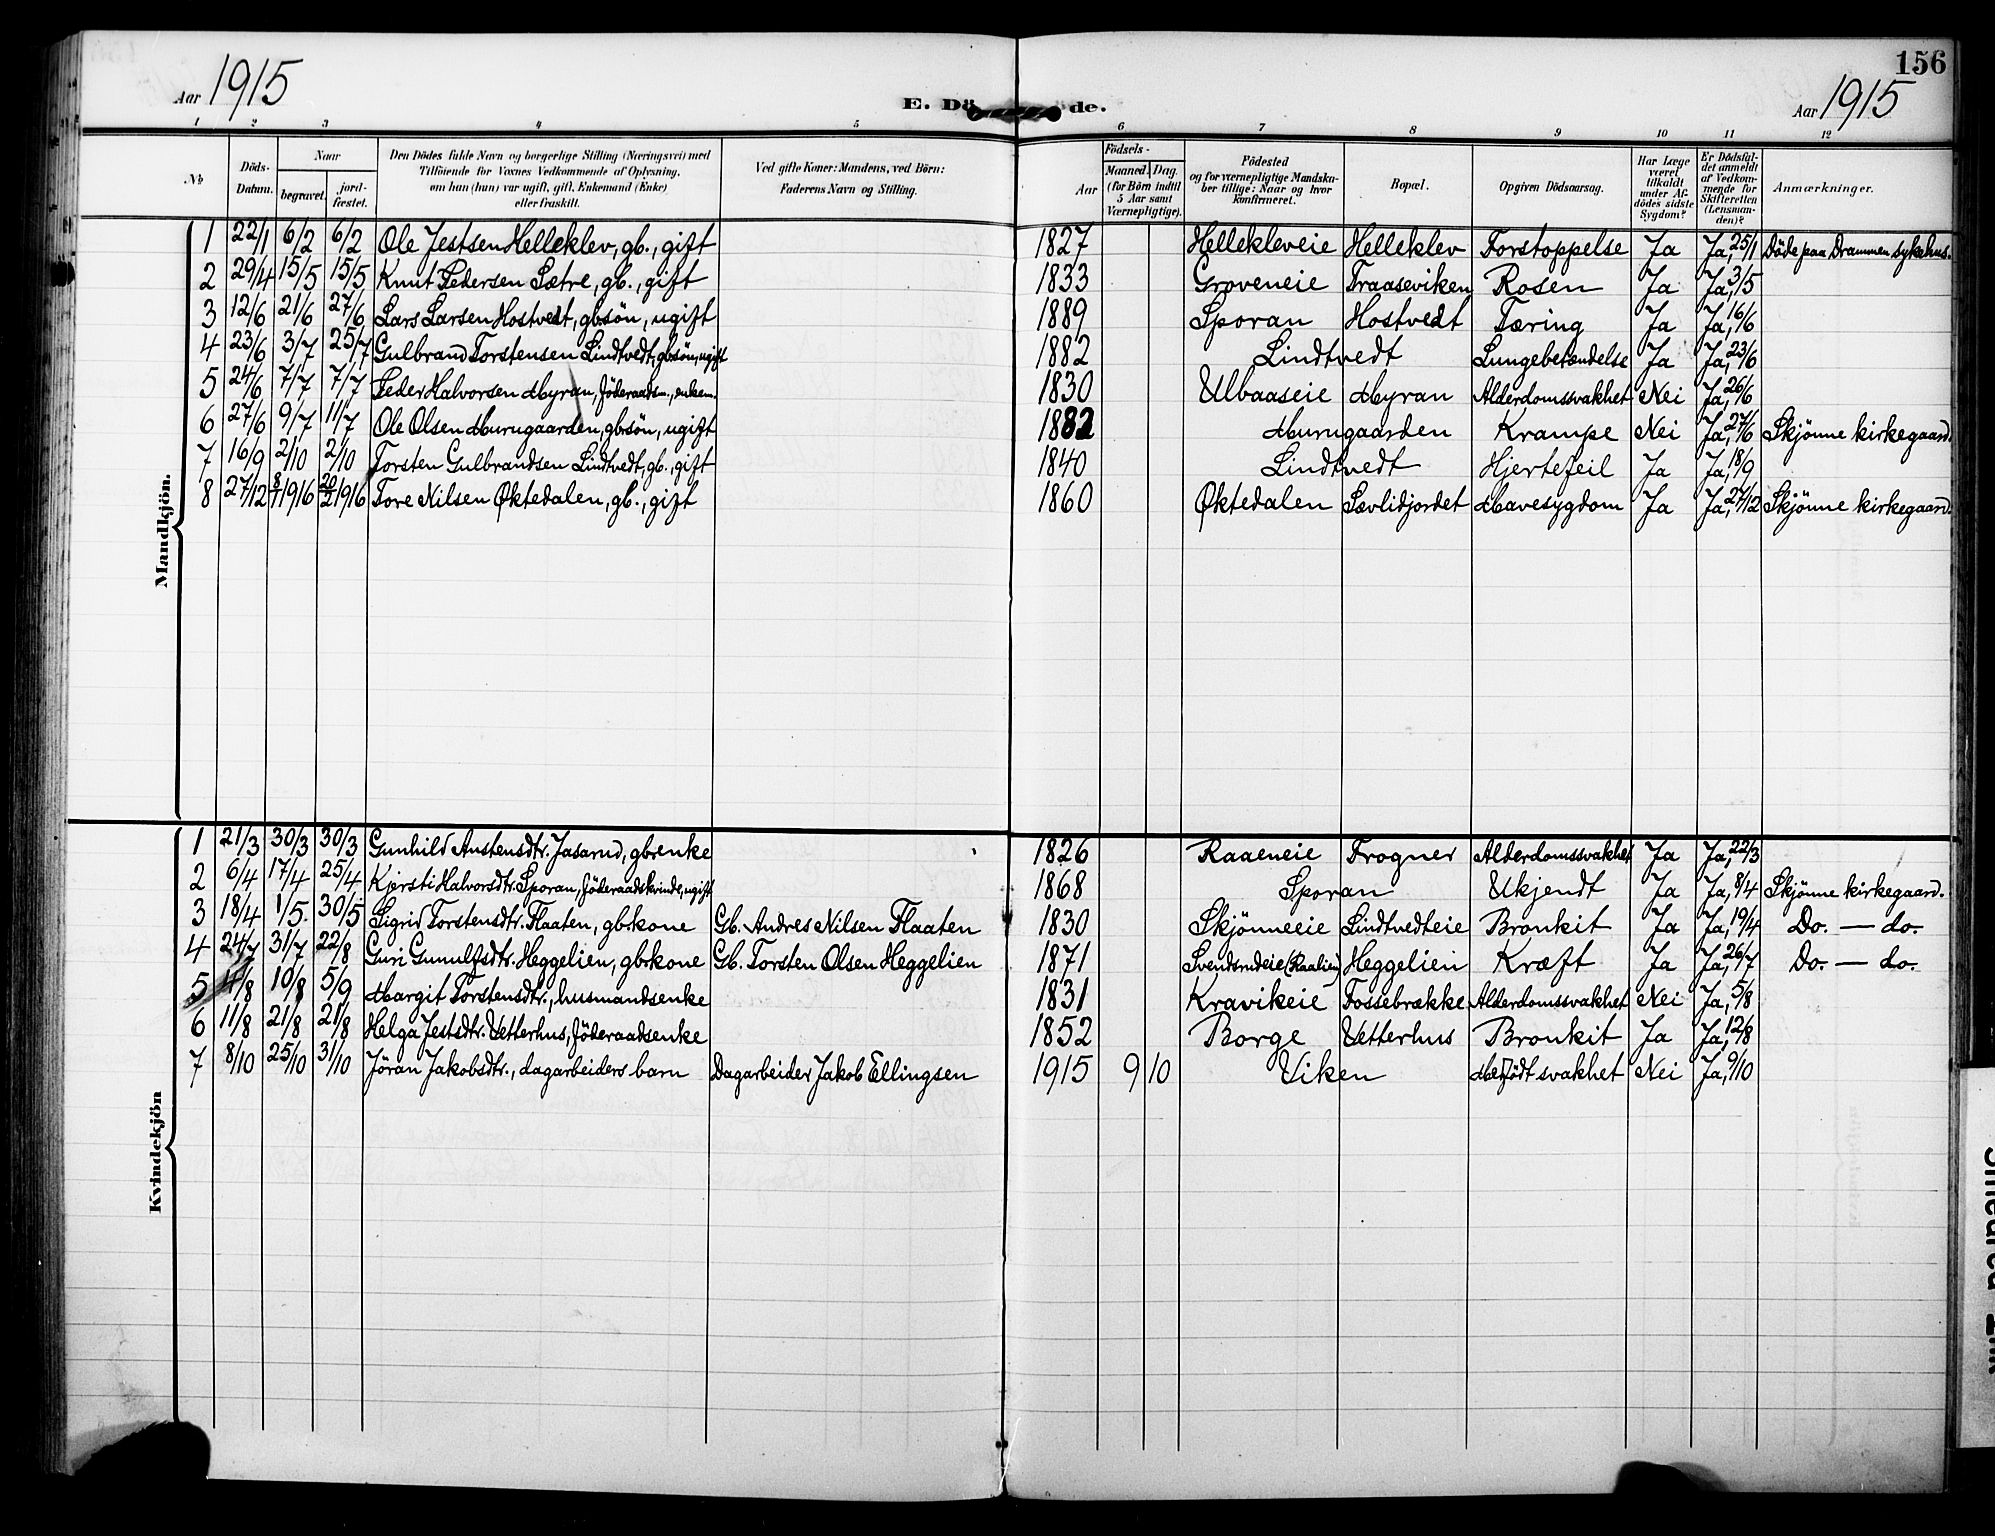 Aar 1915
E. Dö de.
156
Aar 1915
1 2 3 4 5 6 7 8 9 10 11 12
№
Döds-Datum.
Naar
begravet.
jord-fæstet.
Den Dödes fulde Navn og borgerlige Stilling (Næringsvei) med Tilföiende for Voxnes Vedkommende af Oplysning, om han (hun) var ugift, gift, Enkemand (Enke) eller fraskilt.
Ved gifte Koner: Mandens, ved Börn: Faderens Navn og Stilling.
Födsels-
Aar
Maaned. Dag.
(for Börn indtil 5 Aar samt Værnepligtige).
Födested og for værnepligtige Mandskaber tillige: Naar og hvor konfirmeret.
Bopæl.
Opgiven Dödsaarsag.
Har Læge været tilkaldt under Afdödes sidste Sygdom?
Er Dödsfaldet anmeldt af Vedkommende for Skifteretten (Lensmanden)?
Anmærkninger.
Mandkjön.
1 22/1 6/2 6/2 Ole Jestsen Helleklev, gb., gift 1827 Hellekleveie Helleklev Forstoppelse Ja Ja, 25/1 Döde paa Drammen sykehus.
2 29/4 15/5 15/5 Knut Pedersen Sætre, gb., gift 1833 Groveneie Traaseviken Rosen Ja Ja, 3/5
3 12/6 21/6 27/6 Lars Larsen Hostvedt, gbsön, ugift 1889 Sporan Hostvedt Tæring Ja Ja, 16/6
4 23/6 3/7 25/7 Gulbrand Torstensen Lindtvedt, gbsön, ugift 1882 Lindtvedt Lungebetændelse Ja Ja, 23/6
5 24/6 7/7 7/7 Peder Halvorsen Myran, föderaadsm., enkem. 1830 Ulbaaseie Myran Alderdomssvakhet Nei Ja, 26/6
6 27/6 9/7 11/7 Ole Olsen Murugaarden, gbsön, ugift 1882 Murugaarden Krampe Nei Ja, 27/6 Skjönne kirkegaard.
7 16/9 2/10 2/10 Torsten Gulbrandsen Lindtvedt, gb., gift 1840 Lindtvedt Hjertefeil Ja Ja, 18/9
8 27/12 8/1 1916 20/2 1916 Tore Nilsen Øktedalen, gb., gift 1860 Øktedalen Sævlidjordet Mavesygdom Ja Ja, 27/12 Skjönne kirkegaard.
Kvindekjön
1 21/3 30/3 30/3 Gunhild Austensdtr. Jasarud, gbrenke 1826 Raaeneie Frogner Alderdomssvakhet Ja Ja, 22/3
2 6/4 17/4 25/4 Kjersti Halvorsdtr. Sporan, föderaadskvinde, ugift 1868 Sporan Ukjendt Ja Ja, 8/4 Skjönne kirkegaard.
3 18/4 1/5. 30/5 Sigrid Torstensdtr. Flaaten, gbkone Gb. Andres Nilsen Flaaten 1830 Skjönneeie Lindtvedteie Bronkit Ja Ja, 19/4 Do. — do.
4 24/7 31/7 22/8 Guri Gunulfsdtr. Heggelien, gbkone Gb. Torsten Olsen Heggelien 1871 Svendsrudeie (Raalien) Heggelien Kræft Ja Ja, 26/7 Do. — do.
5 4/8 10/8 5/9 Margit Torstensdtr., husmandsenke 1831 Kravikeie Fossebrække Alderdomssvakhet Nei Ja, 5/8
6 11/8 21/8 21/8 Helga Jestsdtr. Vetterhus, föderaadsenke 1852 Borge Vetterhus Bronkit Ja Ja, 12/8
7 8/10 25/10 31/10 Jöran Jakobsdtr., dagarbeiders barn Dagarbeider Jakob Ellingsen 1915 9 10 Viken Medfödt svakhet Nei Ja, 9/10